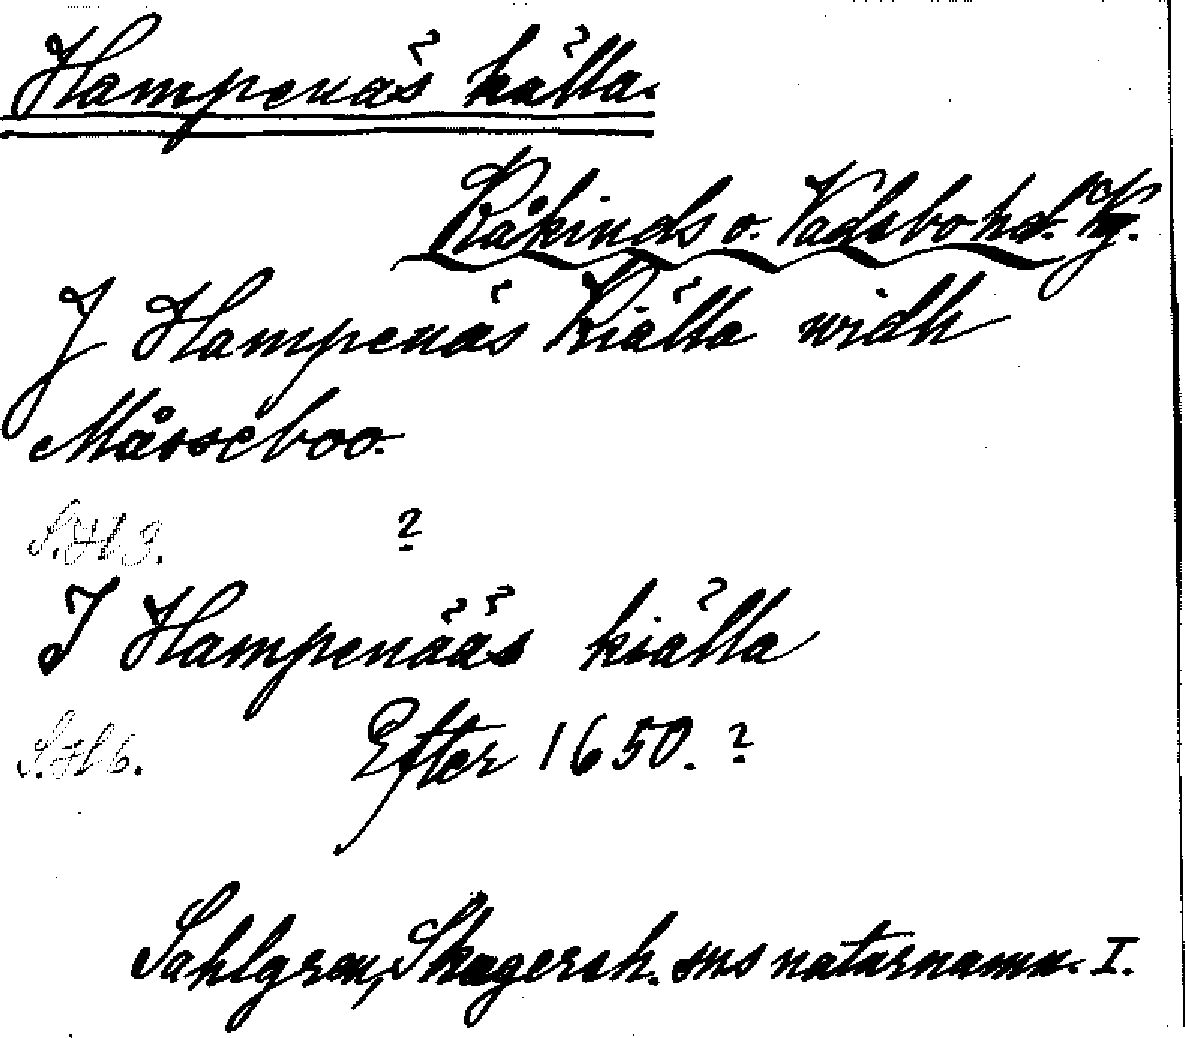 Hampenäs källa.
Kåkinds o. Vadsbo hd. Vg.
J Hampenäs Kiälla widh
Måsseboo.
S.H 3. ?
I Hampenääs kiälla
S.H 6. Efter 1650. ?
Sahlgren, Skagersh. sns naturnamn. I.